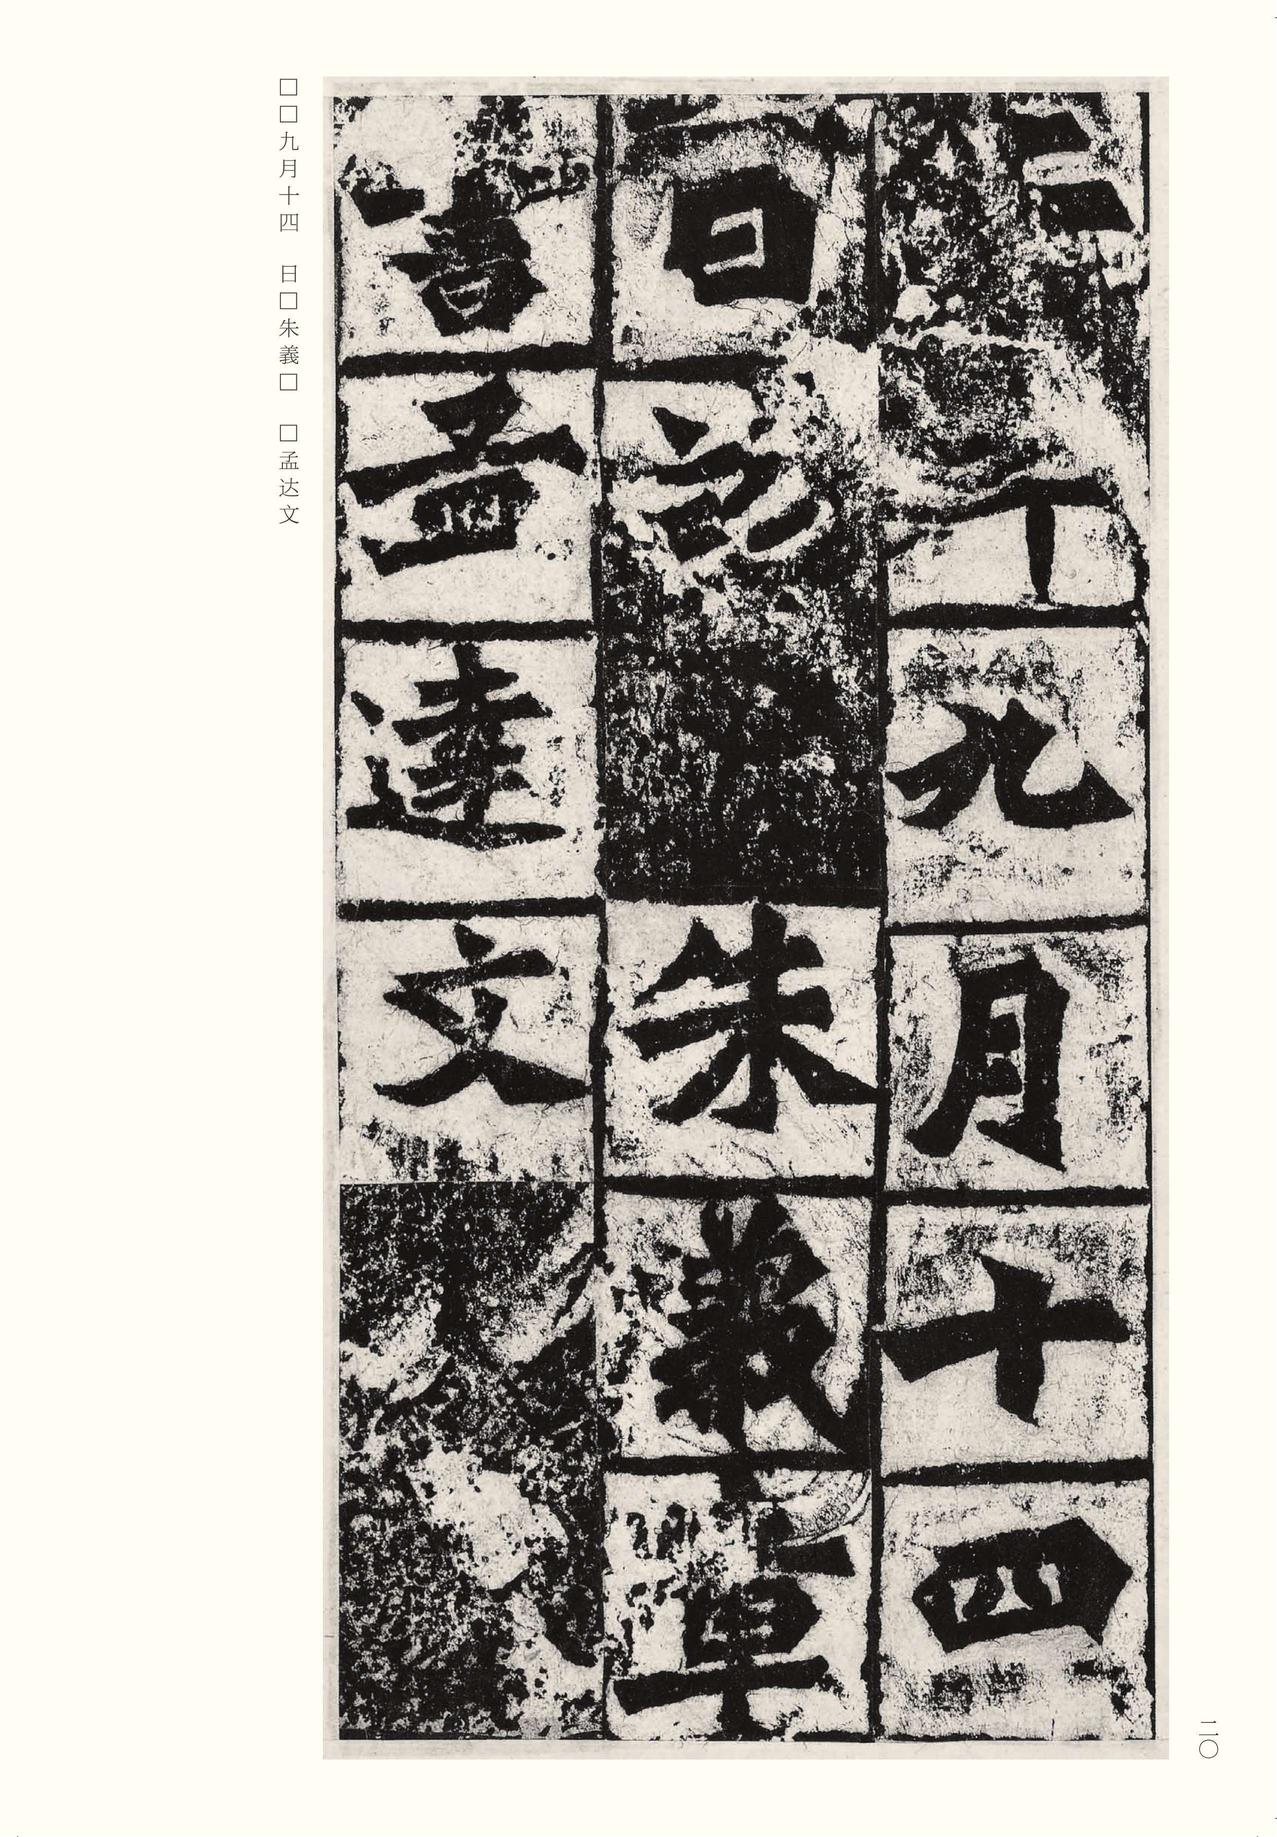 年九月十四
日
朱義章
書孟達文
□□九月十四　日□朱義□　□孟达文
二〇